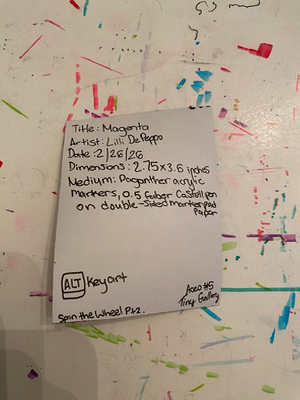 Title: Magenta
Artist: Lilli DePeppo
Date: 2/26/26
Dimensions: 2.75x3.6 inches
Medium: Paganther acrylic
markers, 0.5 Faber Castell pen
on double-sided marker pad
paper
ALT Key art
ACEO #5
Tiny Gallery
Spin the Wheel Pt.2.